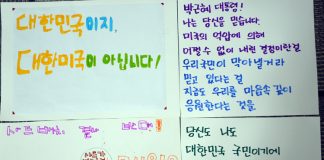 대한민국이지,
대한미국이 아닙니다!
박근혜 대통령!
나는 당신을 믿습니다.
미국의 억압에 의해
어쩔수 없이 내린 결정이란걸
우리국민이 막아낼거라
믿고 있다는 걸
지금도 우리를 마음속 깊이
응원한다는 것을
당신도 나도
대한민국 국민이기에